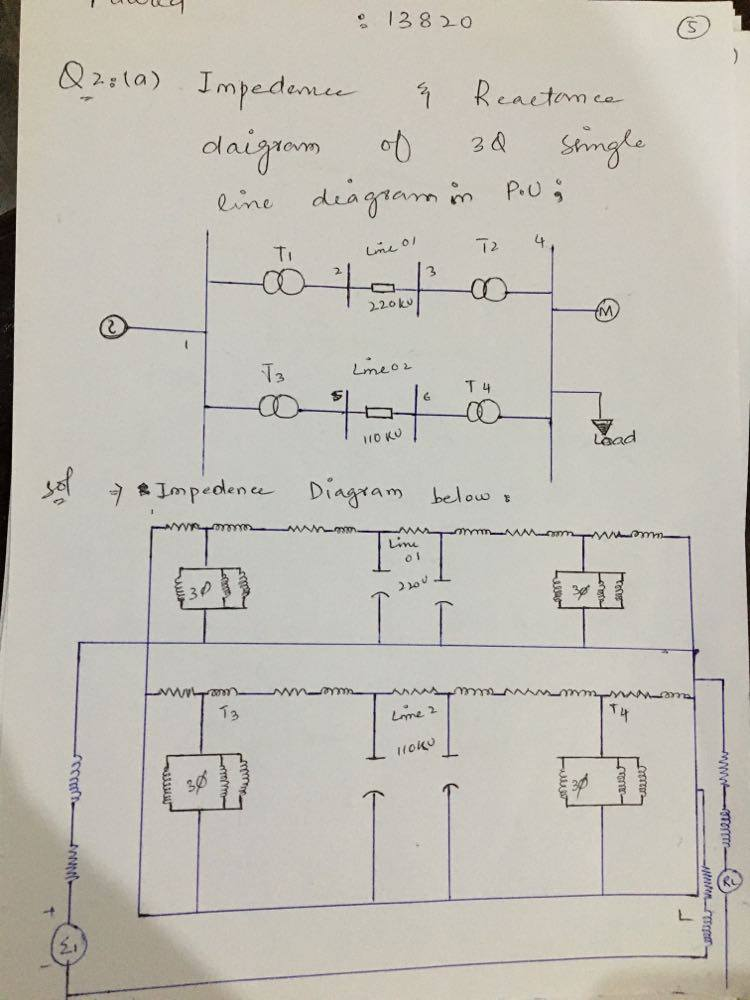 : 13820
5
Q2:(a) Impedence & Reactance
daigram of 3Q single
line diagram in P.U ;
T1
Line 01
T2
4
2
3
220KV
M
1
T3
Line 02
T4
5
6
110KV
Load
Sol => Impedence Diagram below :
Line
01
220V
3Ø
3Ø
T3
Line 2
T4
110KV
3Ø
3Ø
+
E1
-
L